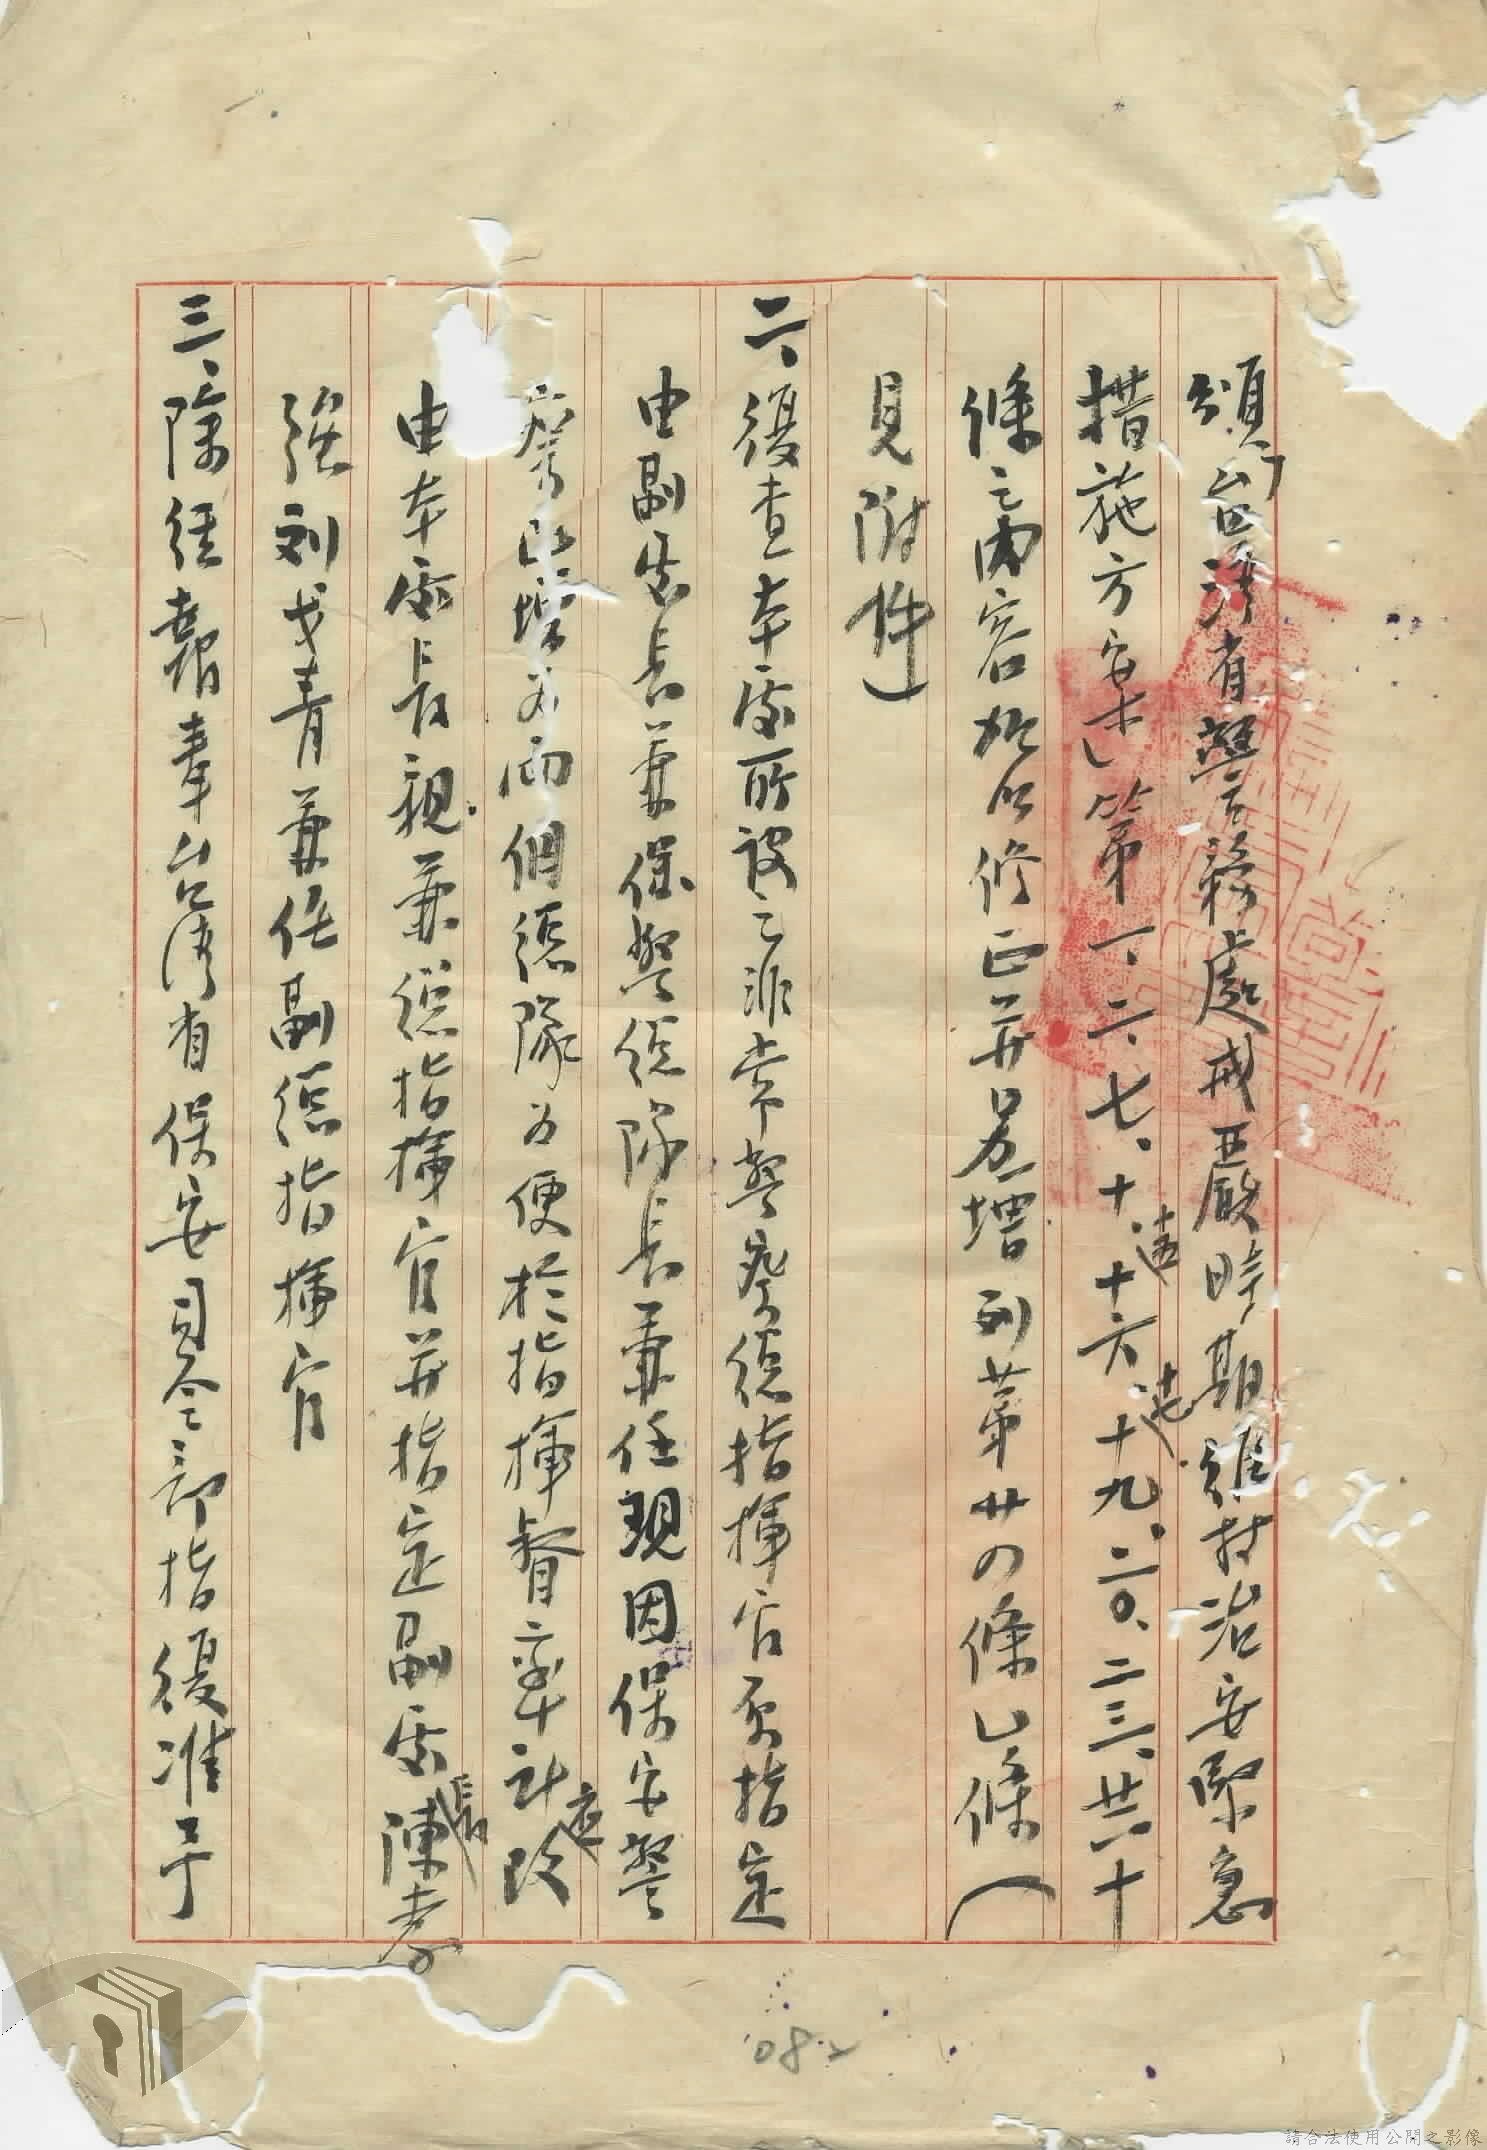 頒「台灣省警務處戒嚴時期維持治安緊急
措施方案」第一、二、七、十、十五、十六、十七、十九、二〇、二三、廿六十
條之內容始以修正并另增列第廿四條乚條(
見附件)
二、復查本處所設之非常警察總指揮官原指定
由副處長兼保警總隊長兼任現因保安警
察已增為兩個總隊為便於指揮督率計應改
由本處長親兼總指揮官并指定副處長陳孝
強劉戈青兼任副總指揮官
三、除經報奉台灣省保安司令部指復准予
082
請合法使用公開之影像